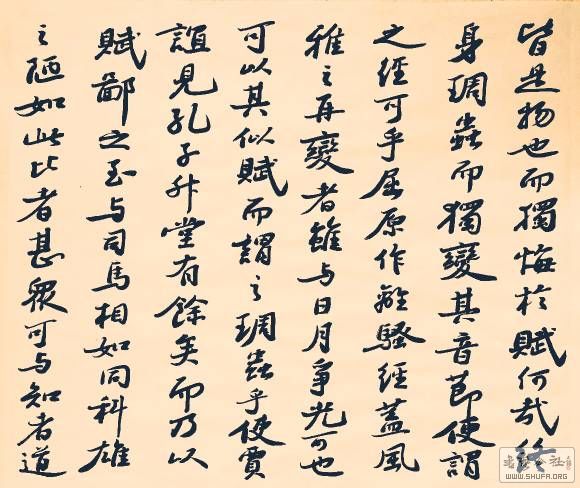 皆是物也而獨悔於賦何哉終
身琱蟲而獨變其音節便謂
之經可乎屈原作離騷經蓋風
雅之再變者雖与日月爭光可也
可以其似賦而謂之琱蟲乎使賈
誼見孔子升堂有餘矣而乃以
賦鄙之至与司馬相如同科雄
之陋如此比者甚眾可与知者道
WWW.SHUFA.ORG